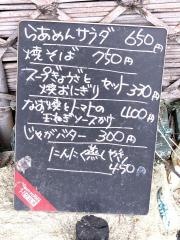 らあめんサラダ 650円
焼そば 750円
スープぎょうざと
焼おにぎり セット 350円
なす焼とトマトの 400円
玉ねぎソースかけ
じゃがバター 300円
にんにく やき
450円